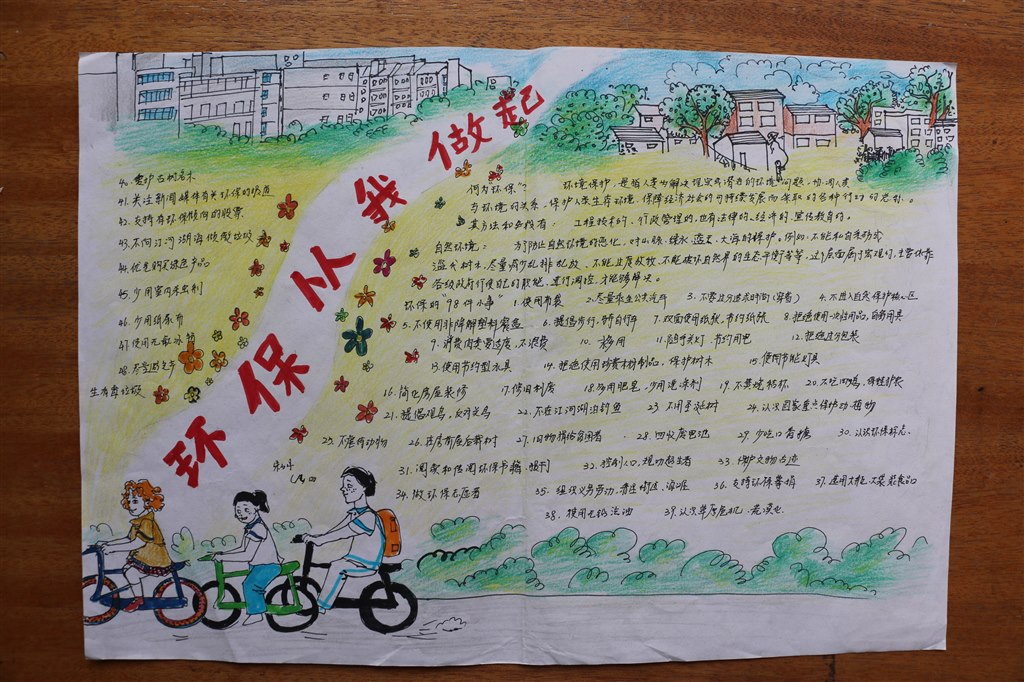 环保从我做起
何为环保"?
环境保护，是指人类为解决现实或潜在的环境问题，协调人类
与环境的关系，保护人类生存环境、保障经济社会的可持续发展而采取的各种行动的总称。
其方法和手段有：工程技术的、行政管理的，也有法律的、经济的、宣传教育的。
自然环境：为了防止自然环境的恶化，对山脉、绿水、蓝天、大海的保护。例如：不能私自采矿或
滥伐树木，尽量减少乱排乱放、不能过度放牧、不能破坏自然界的生态平衡等等，
各级政府行使自己的职能、进行调控，才能够解决。
环保的"98件小事" 1.使用布袋 2.尽量乘坐公共汽车 3.不要过分追求时尚(穿着) 4.不进入自然保护核心区
5.不使用非降解塑料餐盒 6.提倡步行，骑自行车 7.双面使用纸张，节约纸张 8.拒绝使用一次性用品，自备用具
9.消费肉类要适度，不浪费 10. 11.随手关灯、节约用电 12.拒绝过分包装
13.使用节约型水具 14.拒绝使用珍贵木材制品，保护树木 15.使用节能灯具
16.简化房屋装修 17.修旧利废 18.多用肥皂，少用洗涤剂 19.不焚烧秸秆 20.不吃田鸡，保蛙护农
21.提倡观鸟，反对关鸟 22.不在江河湖泊钓鱼 23.不用圣诞树 24.认识国家重点保护动植物
25.不虐待动物 26.在房前屋后栽树 27.旧物捐给贫困者 28.回收废电池 29.少吃口香糖 30.认识环保标志
31.阅读和传阅环保书籍、报刊 32.控制人口，规劝超生者 33.保护文物古迹
34.做环保志愿者 35.组织义务劳动，清洁街道、海滩 36.支持环保募捐 37.选用大瓶、大袋装食品
38.使用无铅汽油 39.认识草原危机、荒漠化
40.爱护古树名木
41.关注新闻媒体有关环保的报道
42.支持有环保倾向的股票
43.不向江河湖海倾倒垃圾
44.优先购买绿色产品
45.少用室内杀虫剂
46.少用纸尿布
47.使用无氟冰箱
48.尽量
生有毒垃圾